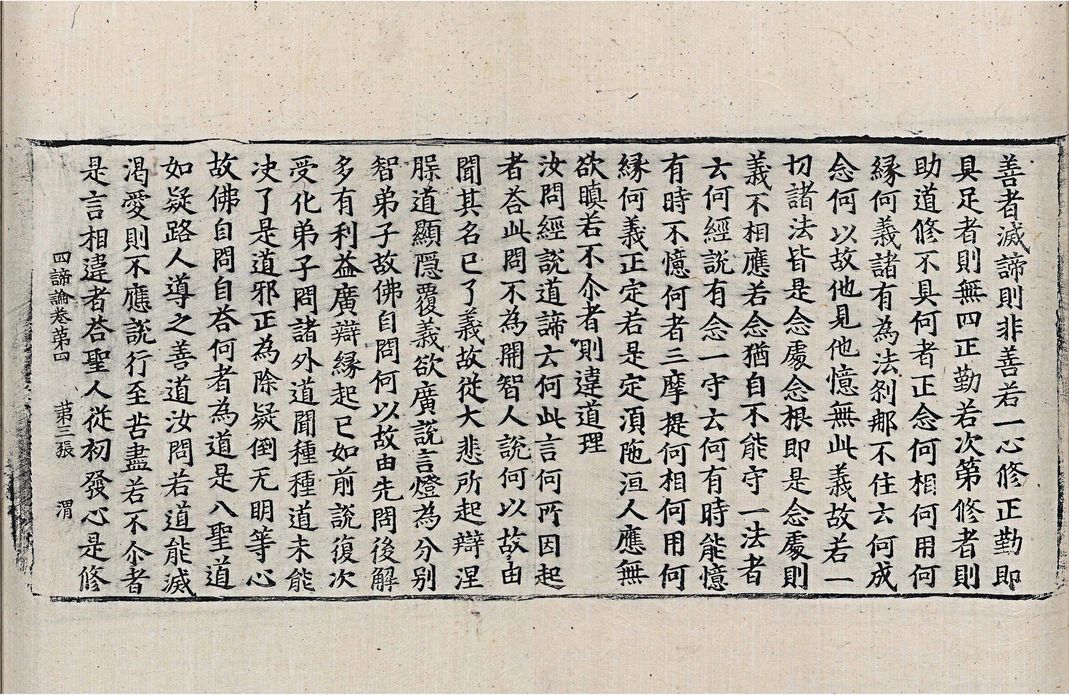 善者滅諦則非善若一心修正勤即
具足者則無四正勤若次第修者則
助道修不具何者正念何相何用何
緣何義諸有為法剎那不住云何成
念何以故他見他憶無此義故若一
切諸法皆是念處念根即是念處則
義不相應若念猶自不能守一法者
云何經說有念一守云何有時能憶
有時不憶何者三摩提何相何用何
緣何義正定若是定湏陁洹人應無
欲瞋若不尒者則違道理
汝問經說道諦云何此言何所因起
者荅此問不為開智人說何以故由
聞其名已了義故從大悲所起辯涅
槃道顯隱覆義欲廣說言燈為分别
智弟子故佛自問何以故由先問後解
多有利益廣辯緣起已如前說復次
受化弟子問諸外道聞種種道未能
决了是道邪正為除疑倒无明等心
故佛自問自荅何者為道是八聖道
如疑路人導之善道汝問若道能滅
渴愛則不應說行至苦盡若不尒者
是言相違者荅聖人從初發心是修
四諦論卷第四　第三張　渭